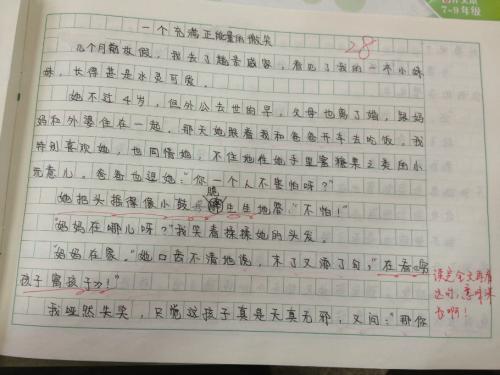 7-9年级
一个充满正能量的微笑
28
几个月前放假，我去了趟亲戚家，看见了我的一个小妹
妹，长得甚是水灵可爱。
她不过4岁，但外公去世的早，父母也离了婚，跟妈
妈和外婆住在一起。那天她跟着我和爸爸开车去吃饭。我
特别喜欢她，也同情她，不住地往她手里塞糖果之类的小
玩意儿。爸爸也逗她："你一个人不害怕呀？"
她把头摇得像小鼓，脆生生地答："不怕！"
"妈妈在哪儿呀？"我笑着揉揉她的头发。
"妈妈在家。"她口齿不清地说，末了又添了句："在看《熊
孩子富孩子》！"
我哑然失笑，只觉这孩子真是天真无邪，又问："那你
读完全文再看
这句，意味深
长啊！